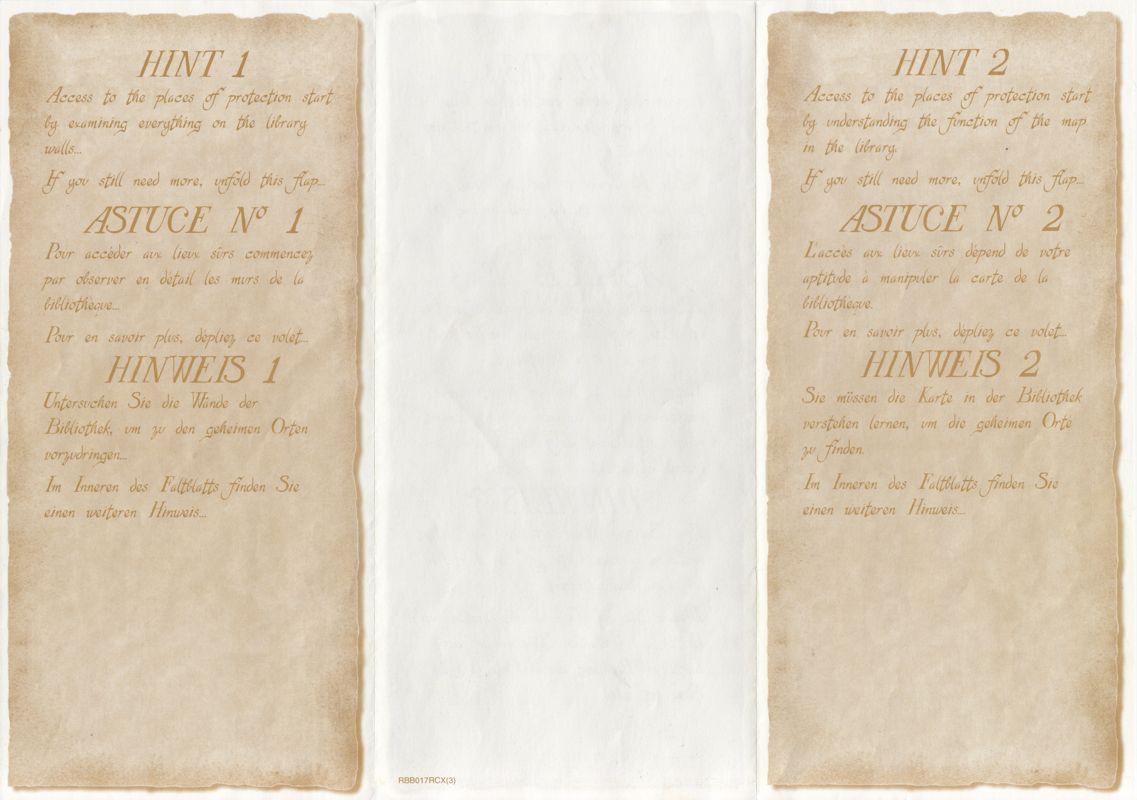 HINT 1
Access to the places of protection start
by examining everything on the library
walls...
If you still need more, unfold this flap...
ASTUCE Nº 1
Pour accéder aux lieux sûrs commencez
par observer en détail les murs de la
bibliothèque...
Pour en savoir plus, dépliez ce volet...
HINWEIS 1
Untersuchen Sie die Wände der
Bibliothek, um zu den geheimen Orten
vorzudringen...
Im Inneren des Faltblatts finden Sie
einen weiteren Hinweis...
RBB017RCX(3)
HINT 2
Access to the places of protection start
by understanding the function of the map
in the library.
If you still need more, unfold this flap...
ASTUCE Nº 2
L'accès aux lieux sûrs dépend de votre
aptitude à manipuler la carte de la
bibliothèque.
Pour en savoir plus, dépliez ce volet...
HINWEIS 2
Sie müssen die Karte in der Bibliothek
verstehen lernen, um die geheimen Orte
zu finden.
Im Inneren des Faltblatts finden Sie
einen weiteren Hinweis...